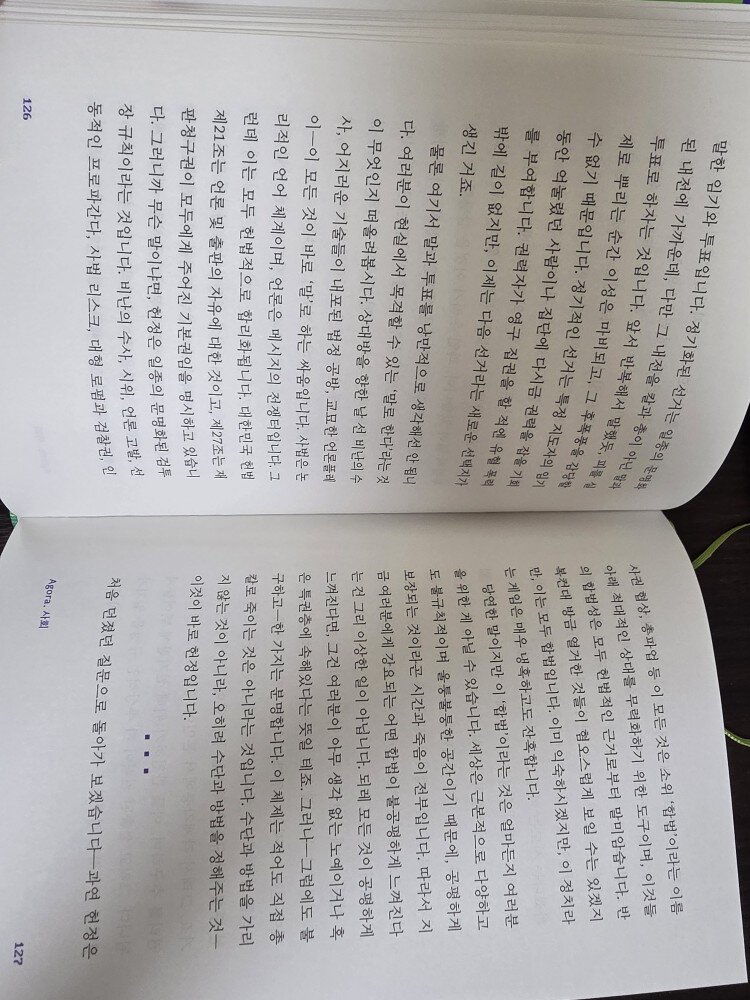 말한 임기와 투표입니다. 정기화된 선거는 일종의 문명화
된 내전에 가까운데, 다만 그 내전을 칼과 총이 아닌 말과
투표로 하자는 것입니다. 앞서 반복해서 말했듯, 피를 실
제로 뿌리는 순간 이성은 마비되고, 그 후폭풍을 감당할
수 없기 때문입니다. 정기적인 선거는 특정 지도자의 임기
동안 억눌렸던 사람이나 집단에 다시금 권력을 잡을 기회
를 부여합니다. 권력자가 영구 집권을 할 적에 유혈 폭력
밖에 길이 없지만, 이제는 다음 선거라는 새로운 선택지가
생긴 거죠.
물론 여기서 말과 투표를 낭만적으로 생각해선 안 됩니
다. 여러분이 현실에서 목격할 수 있는 '말로 한다'라는 것
이 무엇인지 떠올려봅시다. 상대방을 향한 날 선 비난의 수
사, 어지러운 기술들이 내포된 법정 공방, 교묘한 언론플레
이—이 모든 것이 바로 '말'로 하는 싸움입니다. 사법은 논
리적인 언어 체계이며, 언론은 메시지의 전쟁터입니다. 그
런데 이는 모두 헌법적으로 합리화됩니다. 대한민국 헌법
제21조는 언론 및 출판의 자유에 대한 것이고, 제27조는 재
판청구권이 모두에게 주어진 기본권임을 명시하고 있습니
다. 그러니까 무슨 말이냐면, 헌정은 일종의 문명화된 검투
장 규칙이라는 것입니다. 비난의 수사, 시위, 언론 고발, 선
동적인 프로파간다, 사법 리스크, 대형 로펌과 검찰권, 인
126
사권 협상, 총파업 등 이 모든 것은 소위 '합법'이라는 이름
아래 적대적인 상대를 무력화하기 위한 도구이며, 이것들
의 합법성은 모두 헌법적인 근거로부터 말미암습니다. 반
복컨대 방금 열거한 것들이 혐오스럽게 보일 수는 있겠지
만, 이는 모두 합법입니다. 이미 익숙하시겠지만, 이 정치라
는 게임은 매우 냉혹하고도 잔혹합니다.
당연한 말이지만 이 '합법'이라는 것은 얼마든지 여러분
을 위한 게 아닐 수 있습니다. 세상은 근본적으로 다양하고
도 불규칙적이며 울퉁불퉁한 공간이기 때문에, 공평하게
보장되는 것이라곤 시간과 죽음이 전부입니다. 따라서 지
금 여러분에게 강요되는 어떤 합법이 불공평하게 느껴진다
는 건 그리 이상한 일이 아닙니다. 되레 모든 것이 공평하게
느껴진다면, 그건 여러분이 아무 생각 없는 노예이거나 혹
은 특권층에 속해있다는 뜻일 테죠. 그러나—그럼에도 불
구하고—한 가지는 분명합니다. 이 체제는 적어도 직접 총
칼로 죽이는 것은 아니라는 것입니다. 수단과 방법을 가리
지 않는 것이 아니라, 오히려 수단과 방법을 정해주는 것—
이것이 바로 헌정입니다.
■ ■ ■
처음 던졌던 질문으로 돌아가 보겠습니다—과연 헌정은
Agora. 사회
127